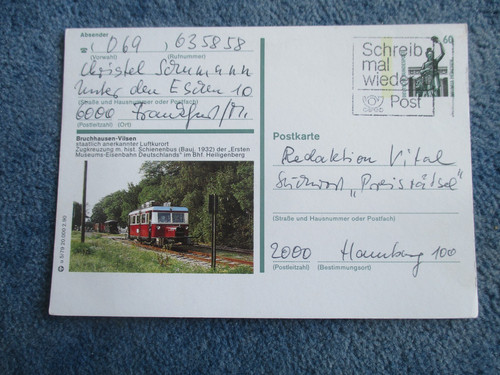 Absender
☎ , 069 , 635858
(Vorwahl) (Rufnummer)
Christel Schumann
Unter den Eschen 10
(Straße und Hausnummer oder Postfach)
6000 Frankfurt/M.
(Postleitzahl) (Ort)
Bruchhausen-Vilsen
staatlich anerkannter Luftkurort
Zugkreuzung m. hist. Schienenbus (Bauj. 1932) der „Ersten
Museums-Eisenbahn Deutschlands" im Bhf. Heiligenberg
Schreib
mal
wieder
Post
60
Postkarte
Redaktion Vital
Stichwort „Preisrätsel"
(Straße und Hausnummer oder Postfach)
2000 Hamburg 100
(Postleitzahl) (Bestimmungsort)